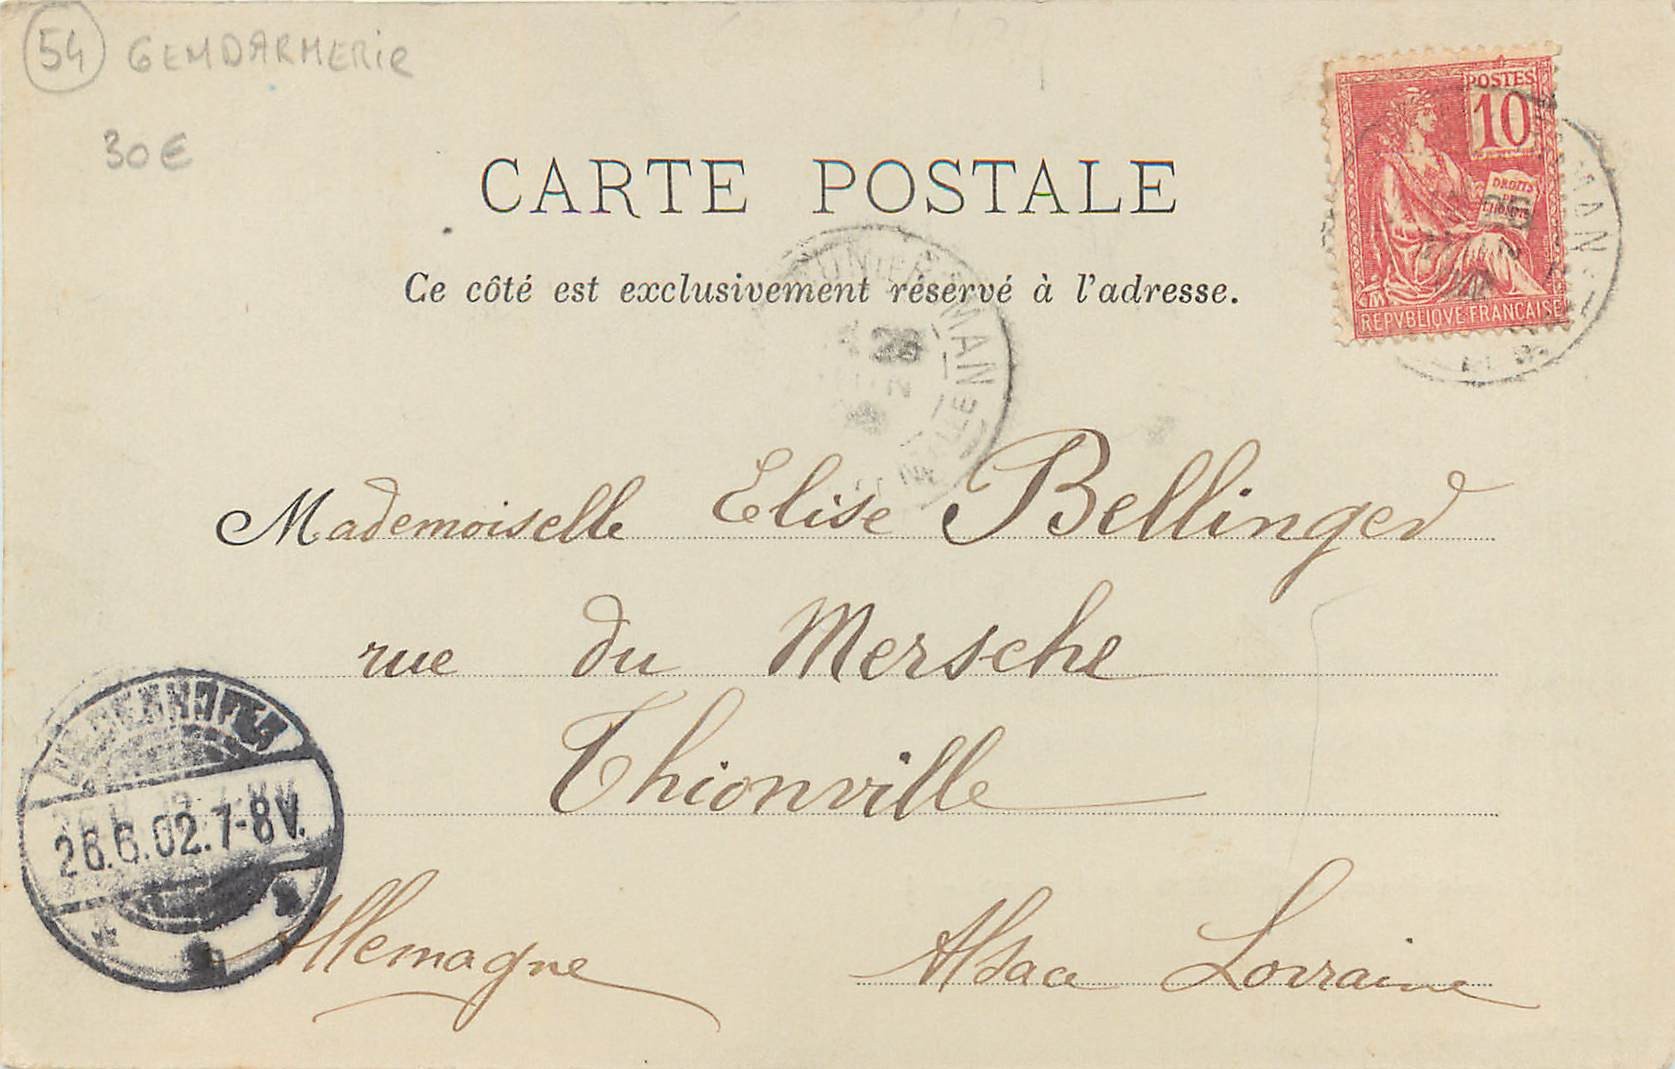 54 GENDARMERIE
30€
POSTES
10
DROITS
REPVBLIQVE FRANCAISE
CARTE POSTALE
Ce côté est exclusivement réservé à l'adresse.
MAN
28
Mademoiselle Elise Bellinger
rue du Mersche
Thionville
26.6.02.7-8V.
Allemagne Alsace Lorraine